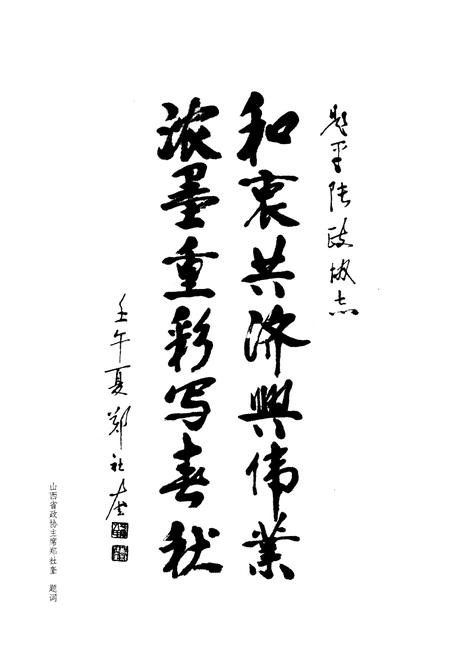 题平陆政协志
和衷共济興伟業
浓墨重彩写春秋
壬午夏郑社奎
山西省政协主席郑社奎 题词